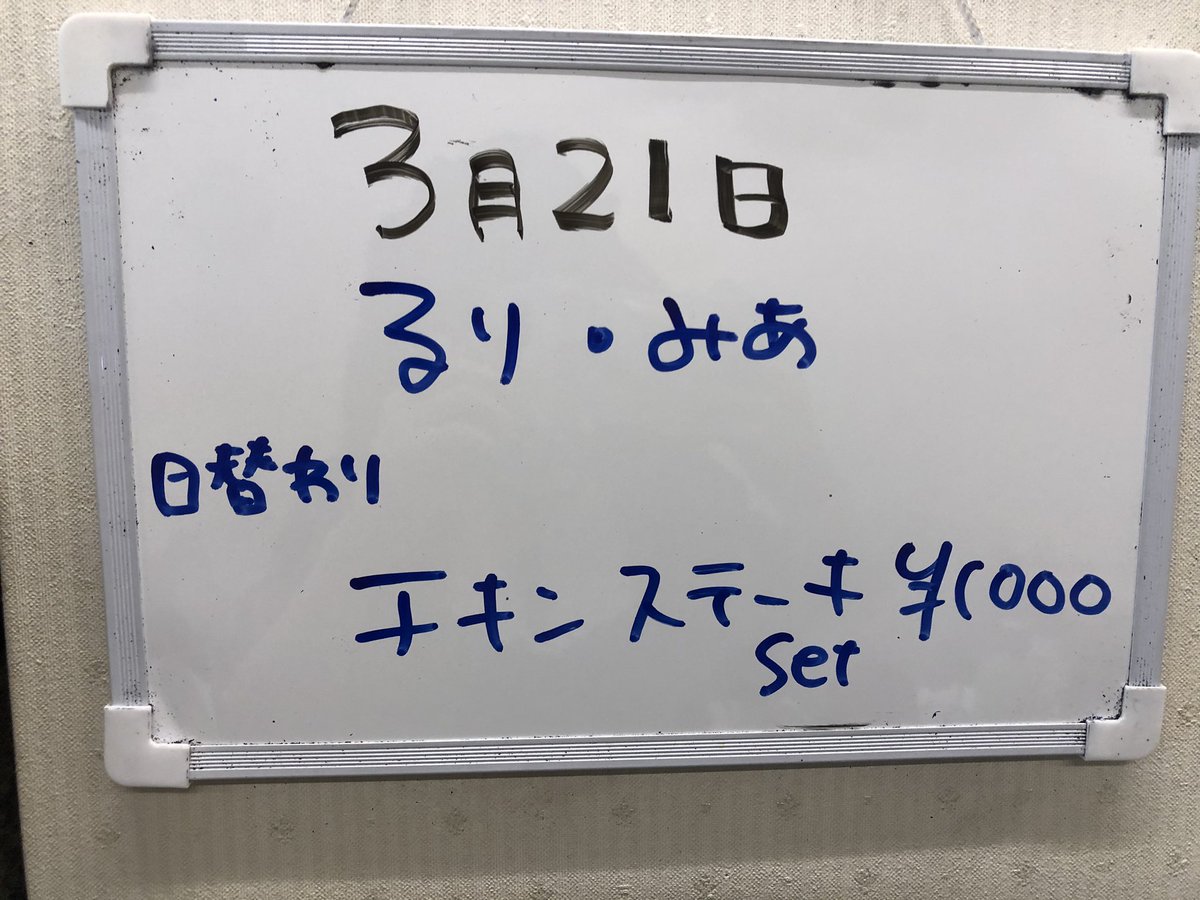 3月21日
るり・みあ
日替わり
チキンステーキ ¥1000
set